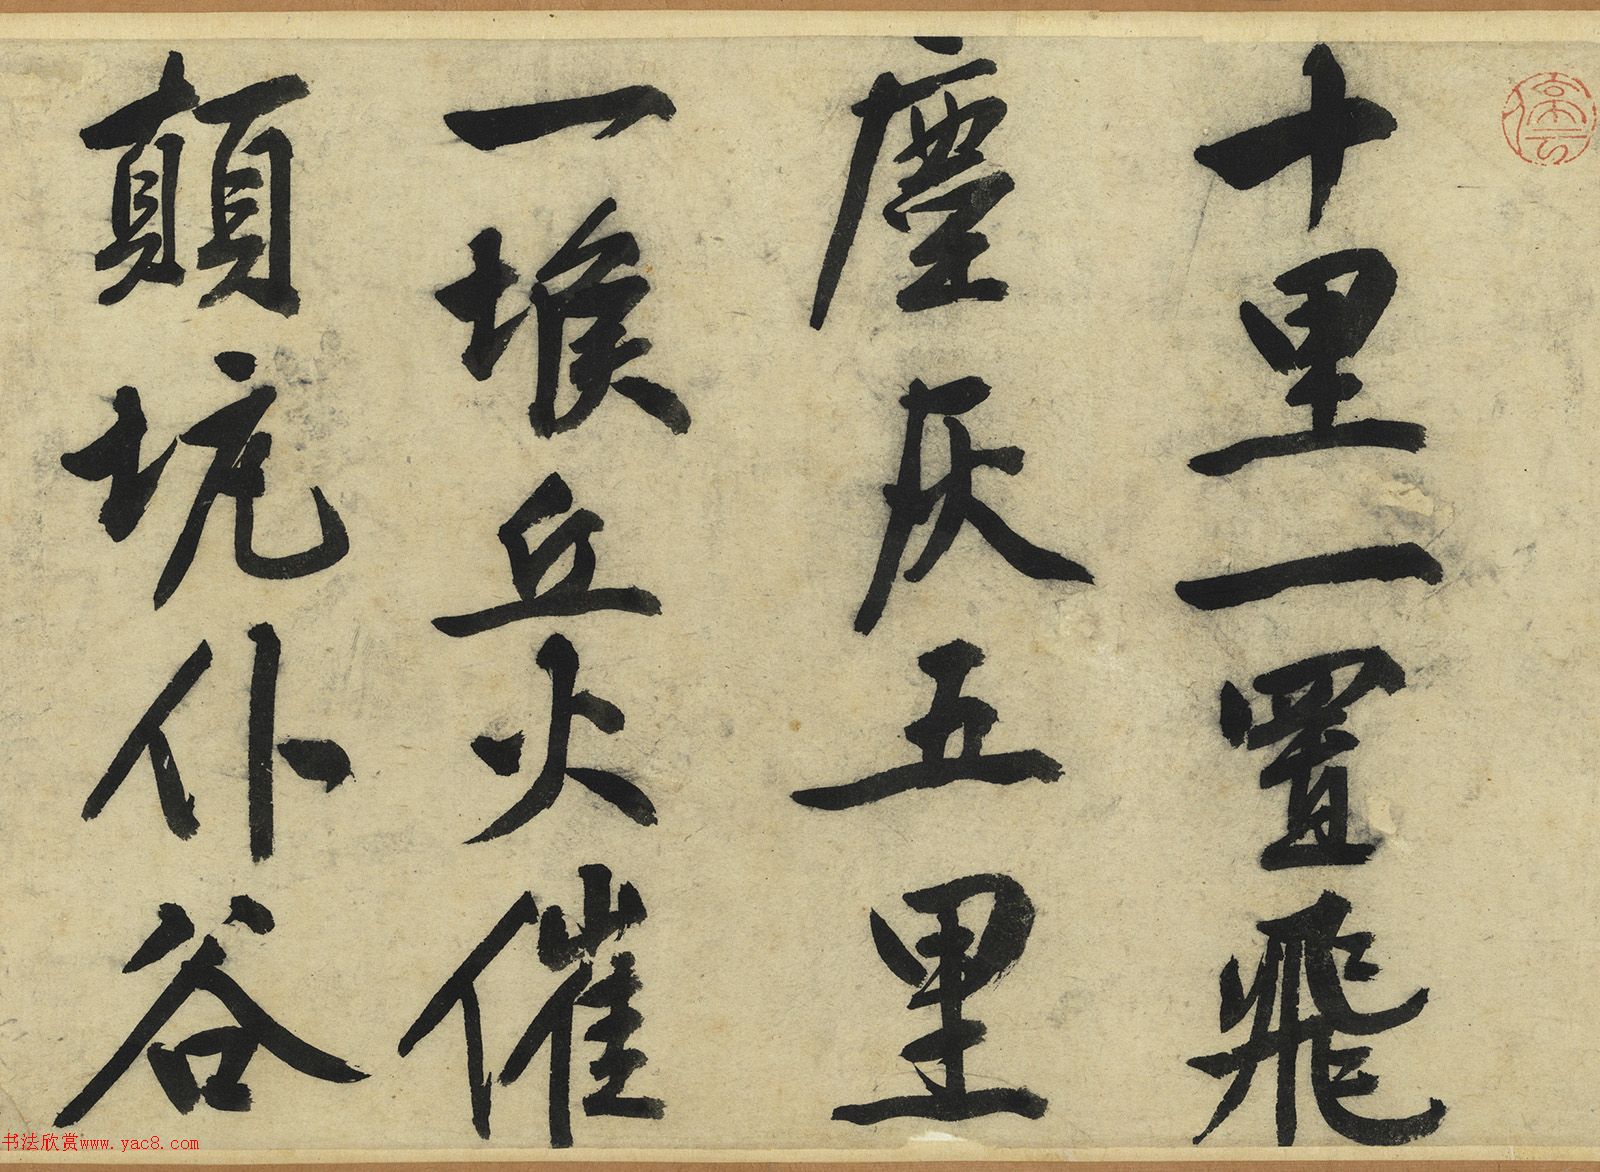 十里一置飛
塵灰五里
一堠丘火催
顛坑仆谷
书法欣赏www.yac8.com